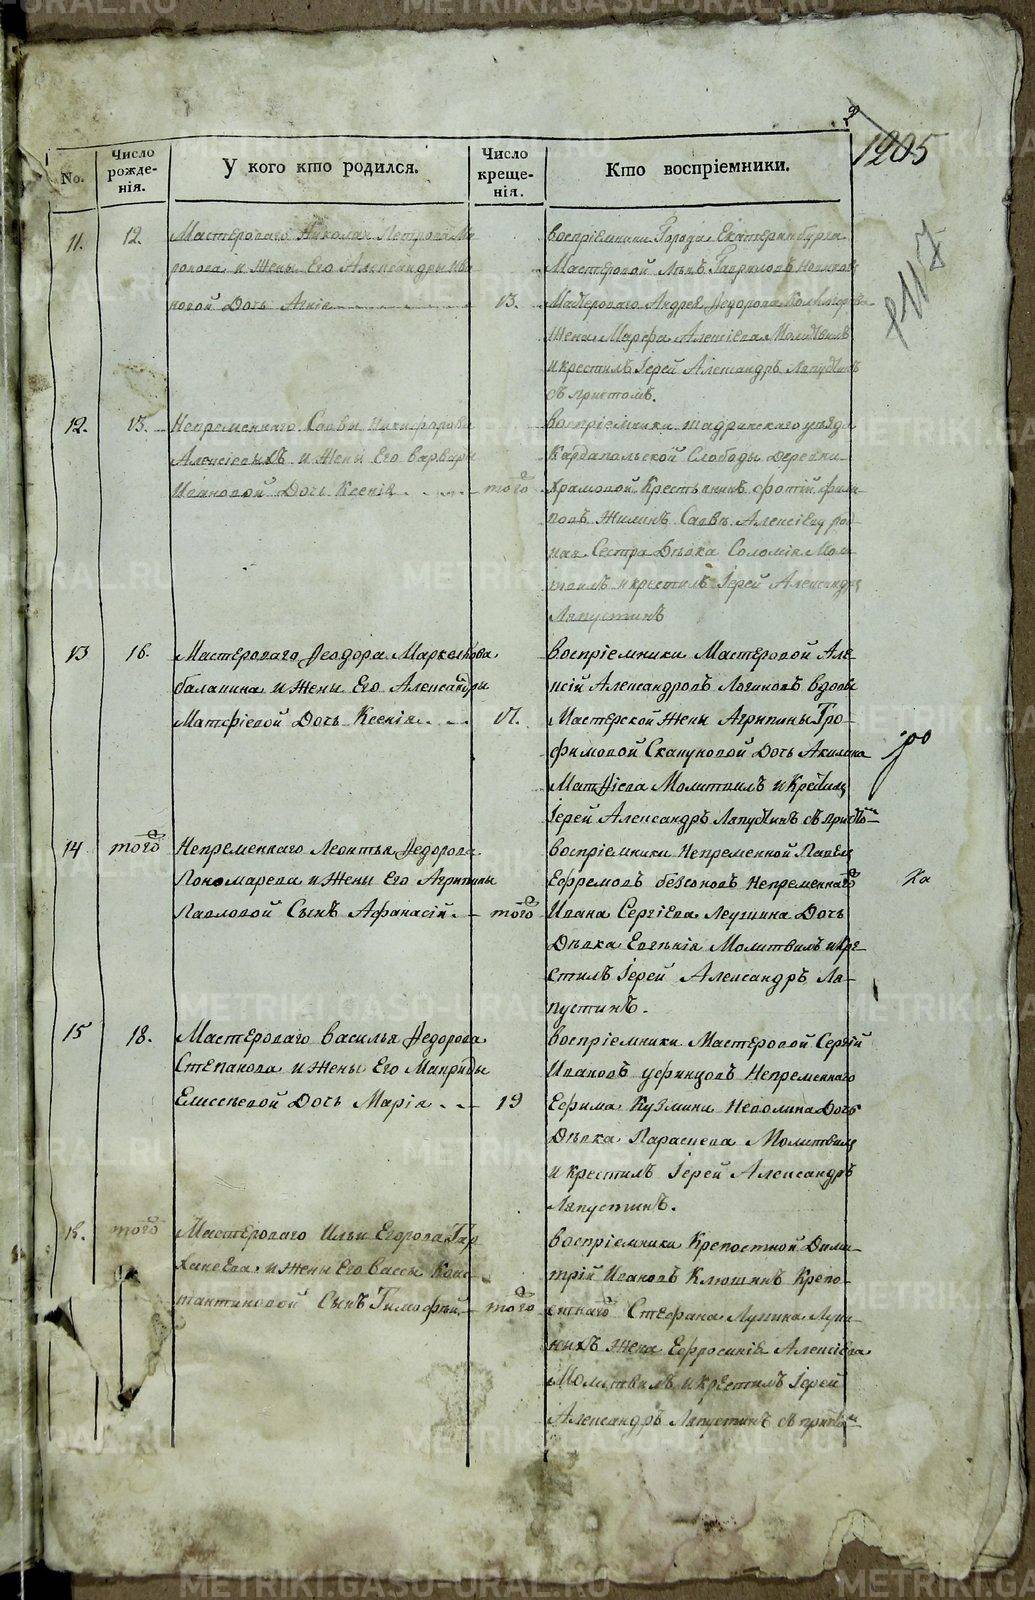 1205
No.
Число рожде-нія.
У кого кто родился.
Число креще-нія.
Кто воспріемники.
11.
12.
Мастероваго Николая Петрова Ма
рова и Жены Его Александры Ива
новой Дочь Агнія
13.
Воспріемники Города Екатеринбурга
Мастеровой Гавриловъ
Мастероваго Андрея Ѳедорова
Жена Марфа Алексіева Молитвилъ
и крестилъ Іерей Александръ Ляпустинъ
съ причтомъ.
12.
13.
Непременнаго Саввы Никифорова
Алексіевыхъ и Жены Его Варвары
Ивановой Дочь Ксенія
того
Воспріемники Шадринскаго уѣзда
Слободы Деревни
Крестьянинъ Фотій Фили
повъ Жилинъ Саввы Алексіева род
ная Сестра Дѣвка Соломія Мол
итвилъ и крестилъ Іерей Александръ
Ляпустинъ
13
16.
Мастероваго Ѳеодора Маркелова
балакина и Жены Его Александры
Матфіевой Дочь Ксенія
17.
Воспріемники Мастеровой Але-
ксій Александровъ Логиновъ вдовы
Мастерской Жены Агрипины Тро-
фимовой Скакуновой Дочь Акилина
Матфіева Молитвилъ и Крестилъ
Іерей Александръ Ляпустинъ съ причтом
14
того
Непременнаго Леонтья Ѳедорова
Пономарева и Жены Его Агрипины
Павловой Сынъ Афанасій.
того
Воспріемники Непременной Павелъ
Ефремовъ безсоновъ Непременнаго
Ха
Ивана Сергіева Леушина Дочь
Дѣвка Евгенія Молитвилъ и кре-
стилъ Іерей Александръ Ля-
пустинъ.
15
18.
Мастероваго Василья Ѳедорова
Степанова и Жены Его Макриды
Елисѣевой Дочь Марія
19
Воспріемники Мастеровой Сергій
Ивановъ уфинцовъ Непременнаго
Ефима Кузмина Неволина Дочь
Дѣвка Параскева Молитвилъ
и крестилъ Іерей Александръ
Ляпустинъ.
16.
того
Мастероваго Ильи Егорова Тар
ханеева и Жены Его Вассы Конс-
тантиновой Сынъ Тимофѣй.
того
Воспріемники Крепостной Дими-
трій Ивановъ Клюшинъ Крепо-
стнаго Стефана Лупина
Жена Ефросинія Алексіева
Молитвилъ и крестилъ Іерей
Александръ Ляпустинъ съ причтом
METRIKI.GASO-URAL.RU